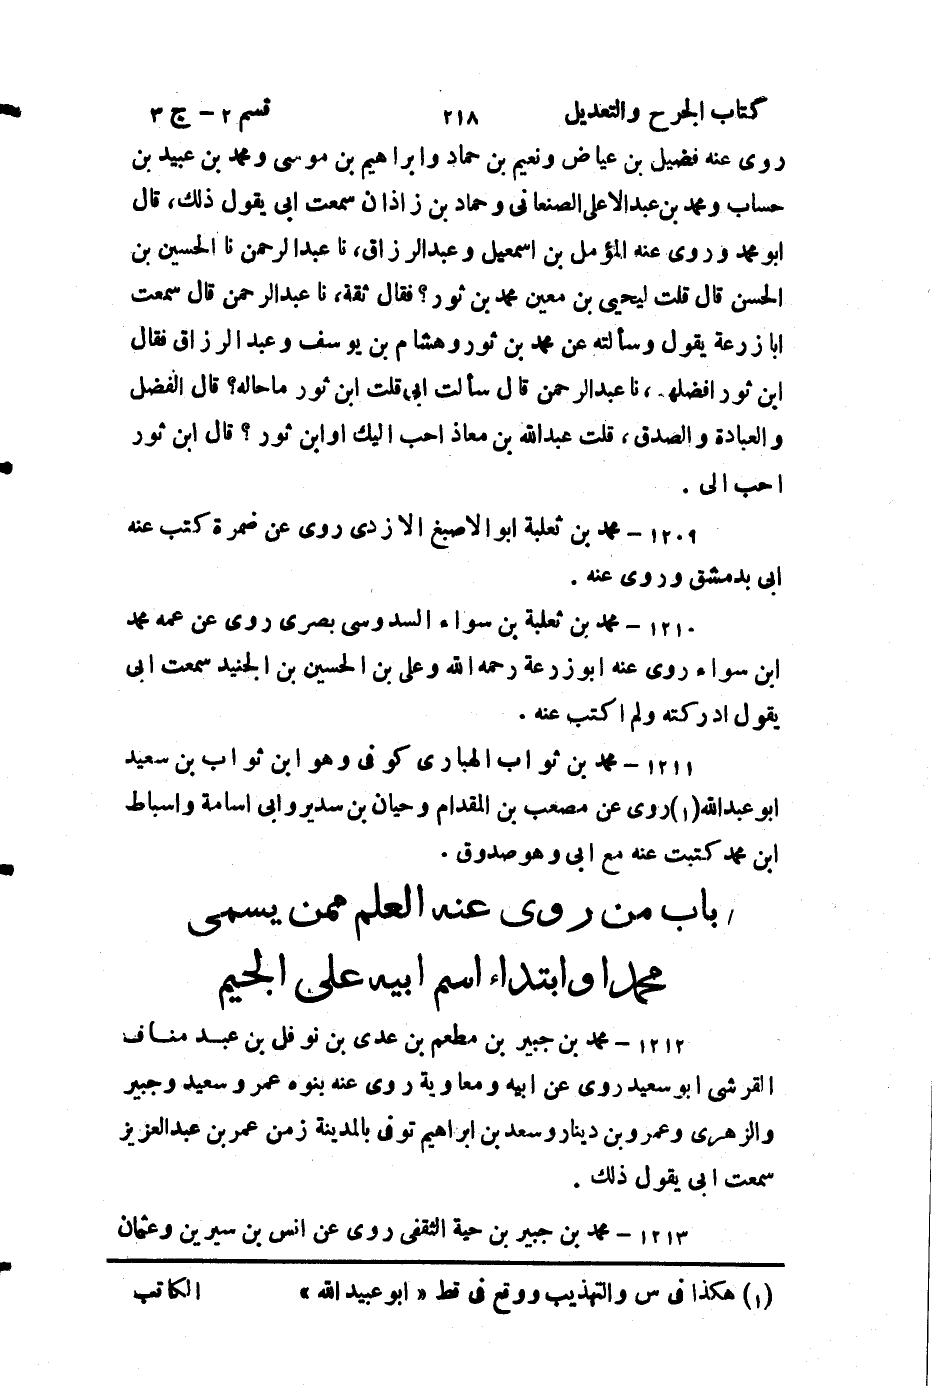 كتاب الجرح والتعديل ٢١٨ قسم ٢ - ج ٣
روى عنه فضيل بن عياض ونعيم بن حماد وابراهيم بن موسى ومحمد بن عبيد بن
حساب ومحمد بن عبدالاعلى الصنعانى وحماد بن زاذان سمعت ابى يقول ذلك، قال
ابو محمد وروى عنه المؤمل بن اسمعيل وعبدالرزاق، نا عبدالرحمن نا الحسين بن
الحسن قال قلت ليحيى بن معين محمد بن ثور؟ فقال ثقة، نا عبدالرحمن قال سمعت
ابا زرعة يقول وسألته عن محمد بن ثور وهشام بن يوسف وعبد الرزاق فقال
ابن ثور افضلهم، نا عبدالرحمن قال سألت ابى قلت ابن ثور ماحاله؟ قال الفضل
والعبادة والصدق، قلت عبدالله بن معاذ احب اليك اوابن ثور ؟ قال ابن ثور
احب الى .
١٢٠٩ - محمد بن ثعلبة ابو الاصبغ الازدى روى عن ضمرة كتب عنه
ابى بدمشق وروى عنه .
١٢١٠ - محمد بن ثعلبة بن سواء السدوسى بصرى روى عن عمه محمد
ابن سواء روى عنه ابو زرعة رحمه الله وعلى بن الحسين بن الجنيد سمعت ابى
يقول ادركته ولم اكتب عنه .
١٢١١ - محمد بن ثواب الهبارى كوفى وهو ابن ثواب بن سعيد
ابو عبدالله (١) روى عن مصعب بن المقدام وحيان بن سدير وابى اسامة واسباط
ابن محمد كتبت عنه مع ابى وهو صدوق .
باب من روى عنه العلم ممن يسمى
محمدا وابتداء اسم ابيه على الجيم
١٢١٢ - محمد بن جبير بن مطعم بن عدى بن نوفل بن عبد مناف
القرشى ابو سعيد روى عن ابيه ومعاوية روى عنه بنوه عمر وسعيد وجبير
والزهرى وعمرو بن دينار وسعد بن ابراهيم توفى بالمدينة زمن عمر بن عبدالعزيز
سمعت ابى يقول ذلك .
١٢١٣ - محمد بن جبير بن حية الثقفى روى عن انس بن سيرين وعثمان
(١) هكذا فى س والتهذيب ووقع فى قط « ابو عبيد الله » الكاتب